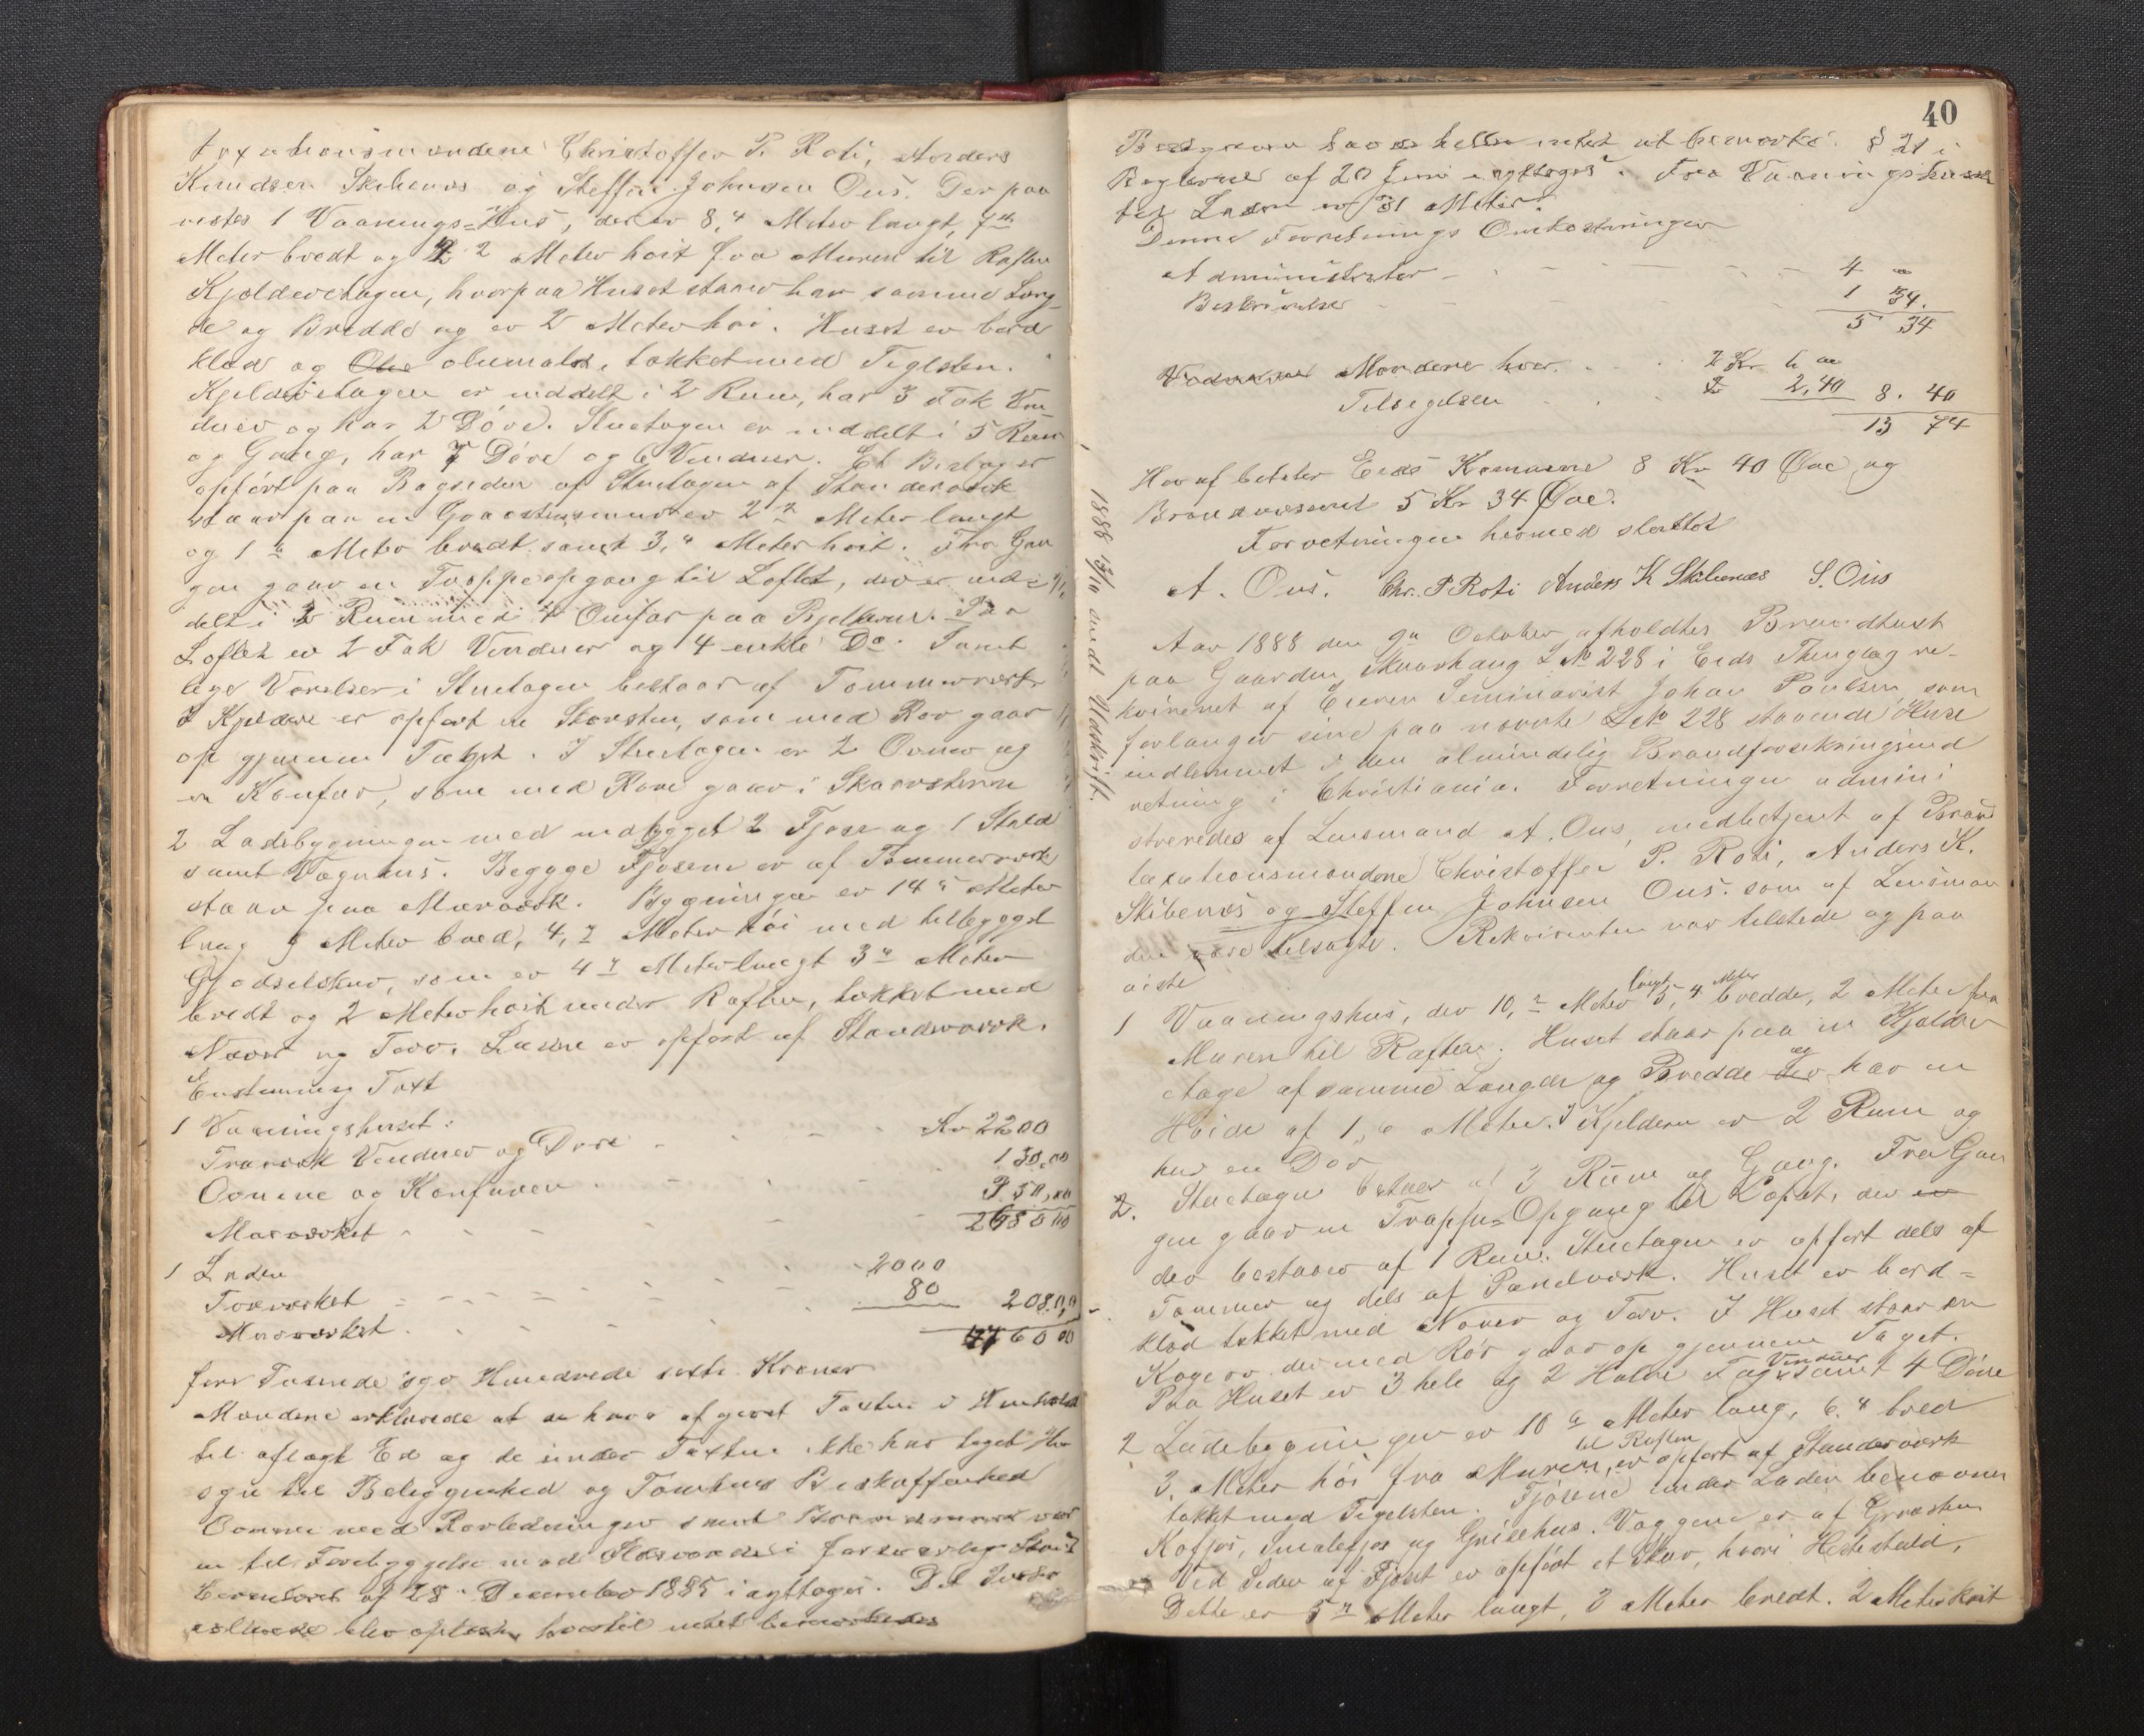 taxationsmændene Christoffer P. Roti, Anders
Knudsen Skibenes og Steffen Johnsen Ous. Der paa
vistes 1 Vaanings=Hus, der er 8,4 Meter langt, 7
Meter bredt og 2 Meter høit fra Muren til Raften
Kjælderetagen, hvorpaa Huset staaer har samme Læng-
de og Bredde og er 2 Meter høi. Huset er bord
klæd og oliemalet, tækket med Teglsten.
Kjelderetagen er inddelt i 2 Rum, har 3 Fak Vin-
duer og har 2 Døre. Stuetagen er inddelt i 5 Rum
og Gang, har 7 Døre og 6 Vinduer. Et Bislag er
opført paa Bagsiden af Stuetagen af Standerværk
staar paa en Graastensmur er 2 Meter langt
og 1 Meter bredt samt 3, Meter høit. Fra Gan
gen gaar en Trappeopgang til Loftet, der er ind-
delt i 2 Rum med 4 paa
Loftet er 2 Fak Vinduer og 4 enkle Do. Samt
lige Værelser i Stuetagen bestaar af Tømmerværk
I Kjelderen er opført en Skorsten, som med Rør gaar
op gjennem Taget. I Stuetagen er 2 Ovner og
en Komfur, som med Røre gaar i Skorstenen
2 Ladebygningen med indbygget 2 Fjøse og 1 Stald
samt Vognhus. Begge Fjøsene er af Tømmerværk
staar paa Murværk. Bygningen er 14 Meter
lang 9 Meter bred, 4, Meter høi med tilbygget
Gjødselskur, som er 4 Meter langt 3 Meter
bredt og 2 Meter høit under Raften, tækket med
Næver og Torv. Laden er opført af Standerværk.
Enstemmig Taxt
1 Vaaningshuset:
Træværk Vinduer og Døre - - - Kr 2200
Ovnene og Komfuren - - - 130,00
Murværket - - - 350,00
2680 00
1 Laden
Træværket - - - 2000
Murværket - - - 80 2080,00
4760 00
fire Tusende syv Hundrede sexti Kroner
Mændene erklærede at de have afgivet Taxten i Henhold
til aflagt Ed og de under Taxten ikke har taget Hen
syn til Beliggenhed og Tomtens Beskaffenhed
Ovnene med Rørledninger samt Brandmure var
en til Forebyggelse mod Ildsvaade i forsvarlig Stand
af 28 December 1885 iagttaget. Det
blev oplæst, hvortil intet bemærkedes
40
havde heller intet at bemærke. § 21 i
Reglerne af 20 Juni iagttoges. Fra Vaaningshuset
til Laden er 31 Meter.
Denne Forretnings Omkostninger
Administrator - - - 4 "
Beskrivelse - - - 1 34.
5 34
Mændene hver - - 2 Kr 6 "
Tilsigelsen - - 2,40 8. 40
13 74
Heraf betaler Eids Komune 8 Kr 40 Øre og
Brandvæsenet 5 Kr 34 Øre.
Forretningen hermed sluttet
A. Ous. Chr. P Roti Anders K Skibenæs S. Ous
1888 13/10 medt Udskrift.
Aar 1888 den 9 October afholdtes Brandtaxt
paa Gaarden Skaarhaug L No 228 i Eids Thinglag re-
kvireret af Eieren Seminarist Johan Paulsen som
forlanger sine paa nævnte L No 228 staaende Huse
indlemmet i den almindelig Brandforsikringsind
retning i Christiania. Forretningen admini
streredes af Lensmand A. Ous, medbetjent af Brand
taxationsmændene Christoffer P. Roti, Anders K.
Skibenes og Steffen Johnsen Ous. som af Lensman
den vare tilsagte. Rekvirenten var tilstede og paa
viste
1 Vaaningshus, der 10, Meter langt 5,4 Meter bredde, 2 Meter fra
Muren til Raften. Huset staar paa en Kjælder
etage af samme Længde og Bredde og har en
Høide af 1,6 Meter. I Kjelderen er 2 Rum og
har en Dør
2. Stuetagen bestaar af 3 Rum og Gang. Fra Gan
gen gaar en Trappe=Opgang til Loftet, der
der bestaar af 1 Rum. Stuetagen er opført dels af
Tømmer og dels af Panelværk. Huset er bord=
klæd tækket med Næver og Torv. I Huset staar en
Kogeovn der med Rør gaar op gjennem Taget.
Paa Huset er 3 hele og 2 Halve Fag Vinduer samt 4 Døre
2 Ladebygningen er 10 Meter lang, 6.4 bred
3. Meter høi fra Muren til Raften, er opført af Standerværk
tækket med Tegelsten. Fjøsene under Laden benævnes
Kofjøs, Smalefjøs og Grisehus. Væggene er af Graasten
Ved Siden af Fjøset er opført et Skur, hvori Hestestald,
Dette er 5 Meter langt, 3 Meter bredt. 2 Meter høit